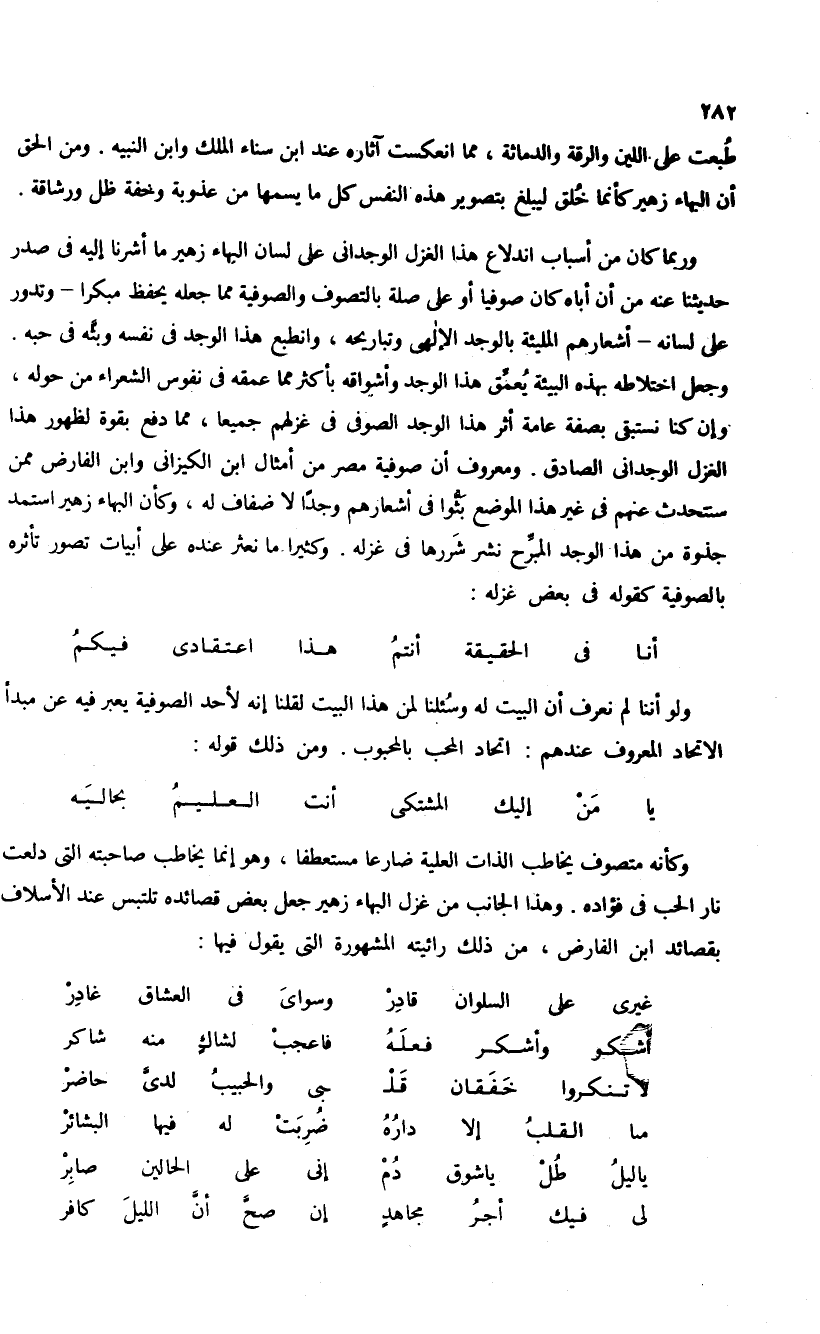 ٢٨٢
طُبعت على اللين والرقة والدماثة ، مما انعكست آثاره عند ابن سناء الملك وابن النبيه . ومن الحق
أن البهاء زهير كأنما خُلق ليبلغ بتصوير هذه النفس كل ما يسمها من عذوبة وخفة ظل ورشاقة .
وربما كان من أسباب اندلاع هذا الغزل الوجدانى على لسان البهاء زهير ما أشرنا إليه فى صدر
حديثنا عنه من أن أباه كان صوفيا أو على صلة بالتصوف والصوفية مما جعله يحفظ مبكرا – وتدور
على لسانه – أشعارهم المليئة بالوجد الإلٰهى وتباريحه ، وانطبع هذا الوجد فى نفسه وبثَّه فى حبه .
وجعل اختلاطه بهذه البيئة يُعمِّق هذا الوجد وأشواقه بأكثر مما عمقه فى نفوس الشعراء من حوله ،
وإن كنا نستبقى بصفة عامة أثر هذا الوجد الصوفى فى غزلهم جميعا ، مما دفع بقوة لظهور هذا
الغزل الوجدانى الصادق . ومعروف أن صوفية مصر من أمثال ابن الكيزانى وابن الفارض ممن
سنتحدث عنهم فى غير هذا الموضع بَثُّوا فى أشعارهم وجدًا لا ضفاف له ، وكأن البهاء زهير استمد
جذوة من هذا الوجد المبرِّح نشر شَررها فى غزله . وكثيرا ما نعثر عنده على أبيات تصور تأثره
بالصوفية كقوله فى بعض غزله :
أنا فى الحقيقة أنتمُ هذا اعتقادى فيكمُ
ولو أننا لم نعرف أن البيت له وسُئلنا لمن هذا البيت لقلنا إنه لأحد الصوفية يعبر فيه عن مبدأ
الاتحاد المعروف عندهم : اتحاد المحب بالمحبوب . ومن ذلك قوله :
يا مَنْ إليك المشتكى أنت العليمُ بحاليَه
وكأنه متصوف يخاطب الذات العلية ضارعا مستعطفا ، وهو إنما يخاطب صاحبته التى دلعت
نار الحب فى فؤاده . وهذا الجانب من غزل البهاء زهير جعل بعض قصائده تلتبس عند الأسلاف
بقصائد ابن الفارض ، من ذلك رائيته المشهورة التى يقول فيها :
غيرى على السلوان قادِرْ وسواىَ فى العشاق غادِرْ
أشكو وأشكر فعلَهُ فاعجبْ لشاكٍ منه شاكر
لا تنكروا خَفَقان قَلْـ ـبى والحبيبُ لدىَّ حاضرْ
ما القلبُ إلا دارُهُ ضُرِبَتْ له فيها البشائرْ
ياليلُ طُلْ ياشوق دُمْ إنى على الحالين صابِرْ
لى فيك أجرُ مجاهدٍ إن صحَّ أنَّ الليلَ كافر